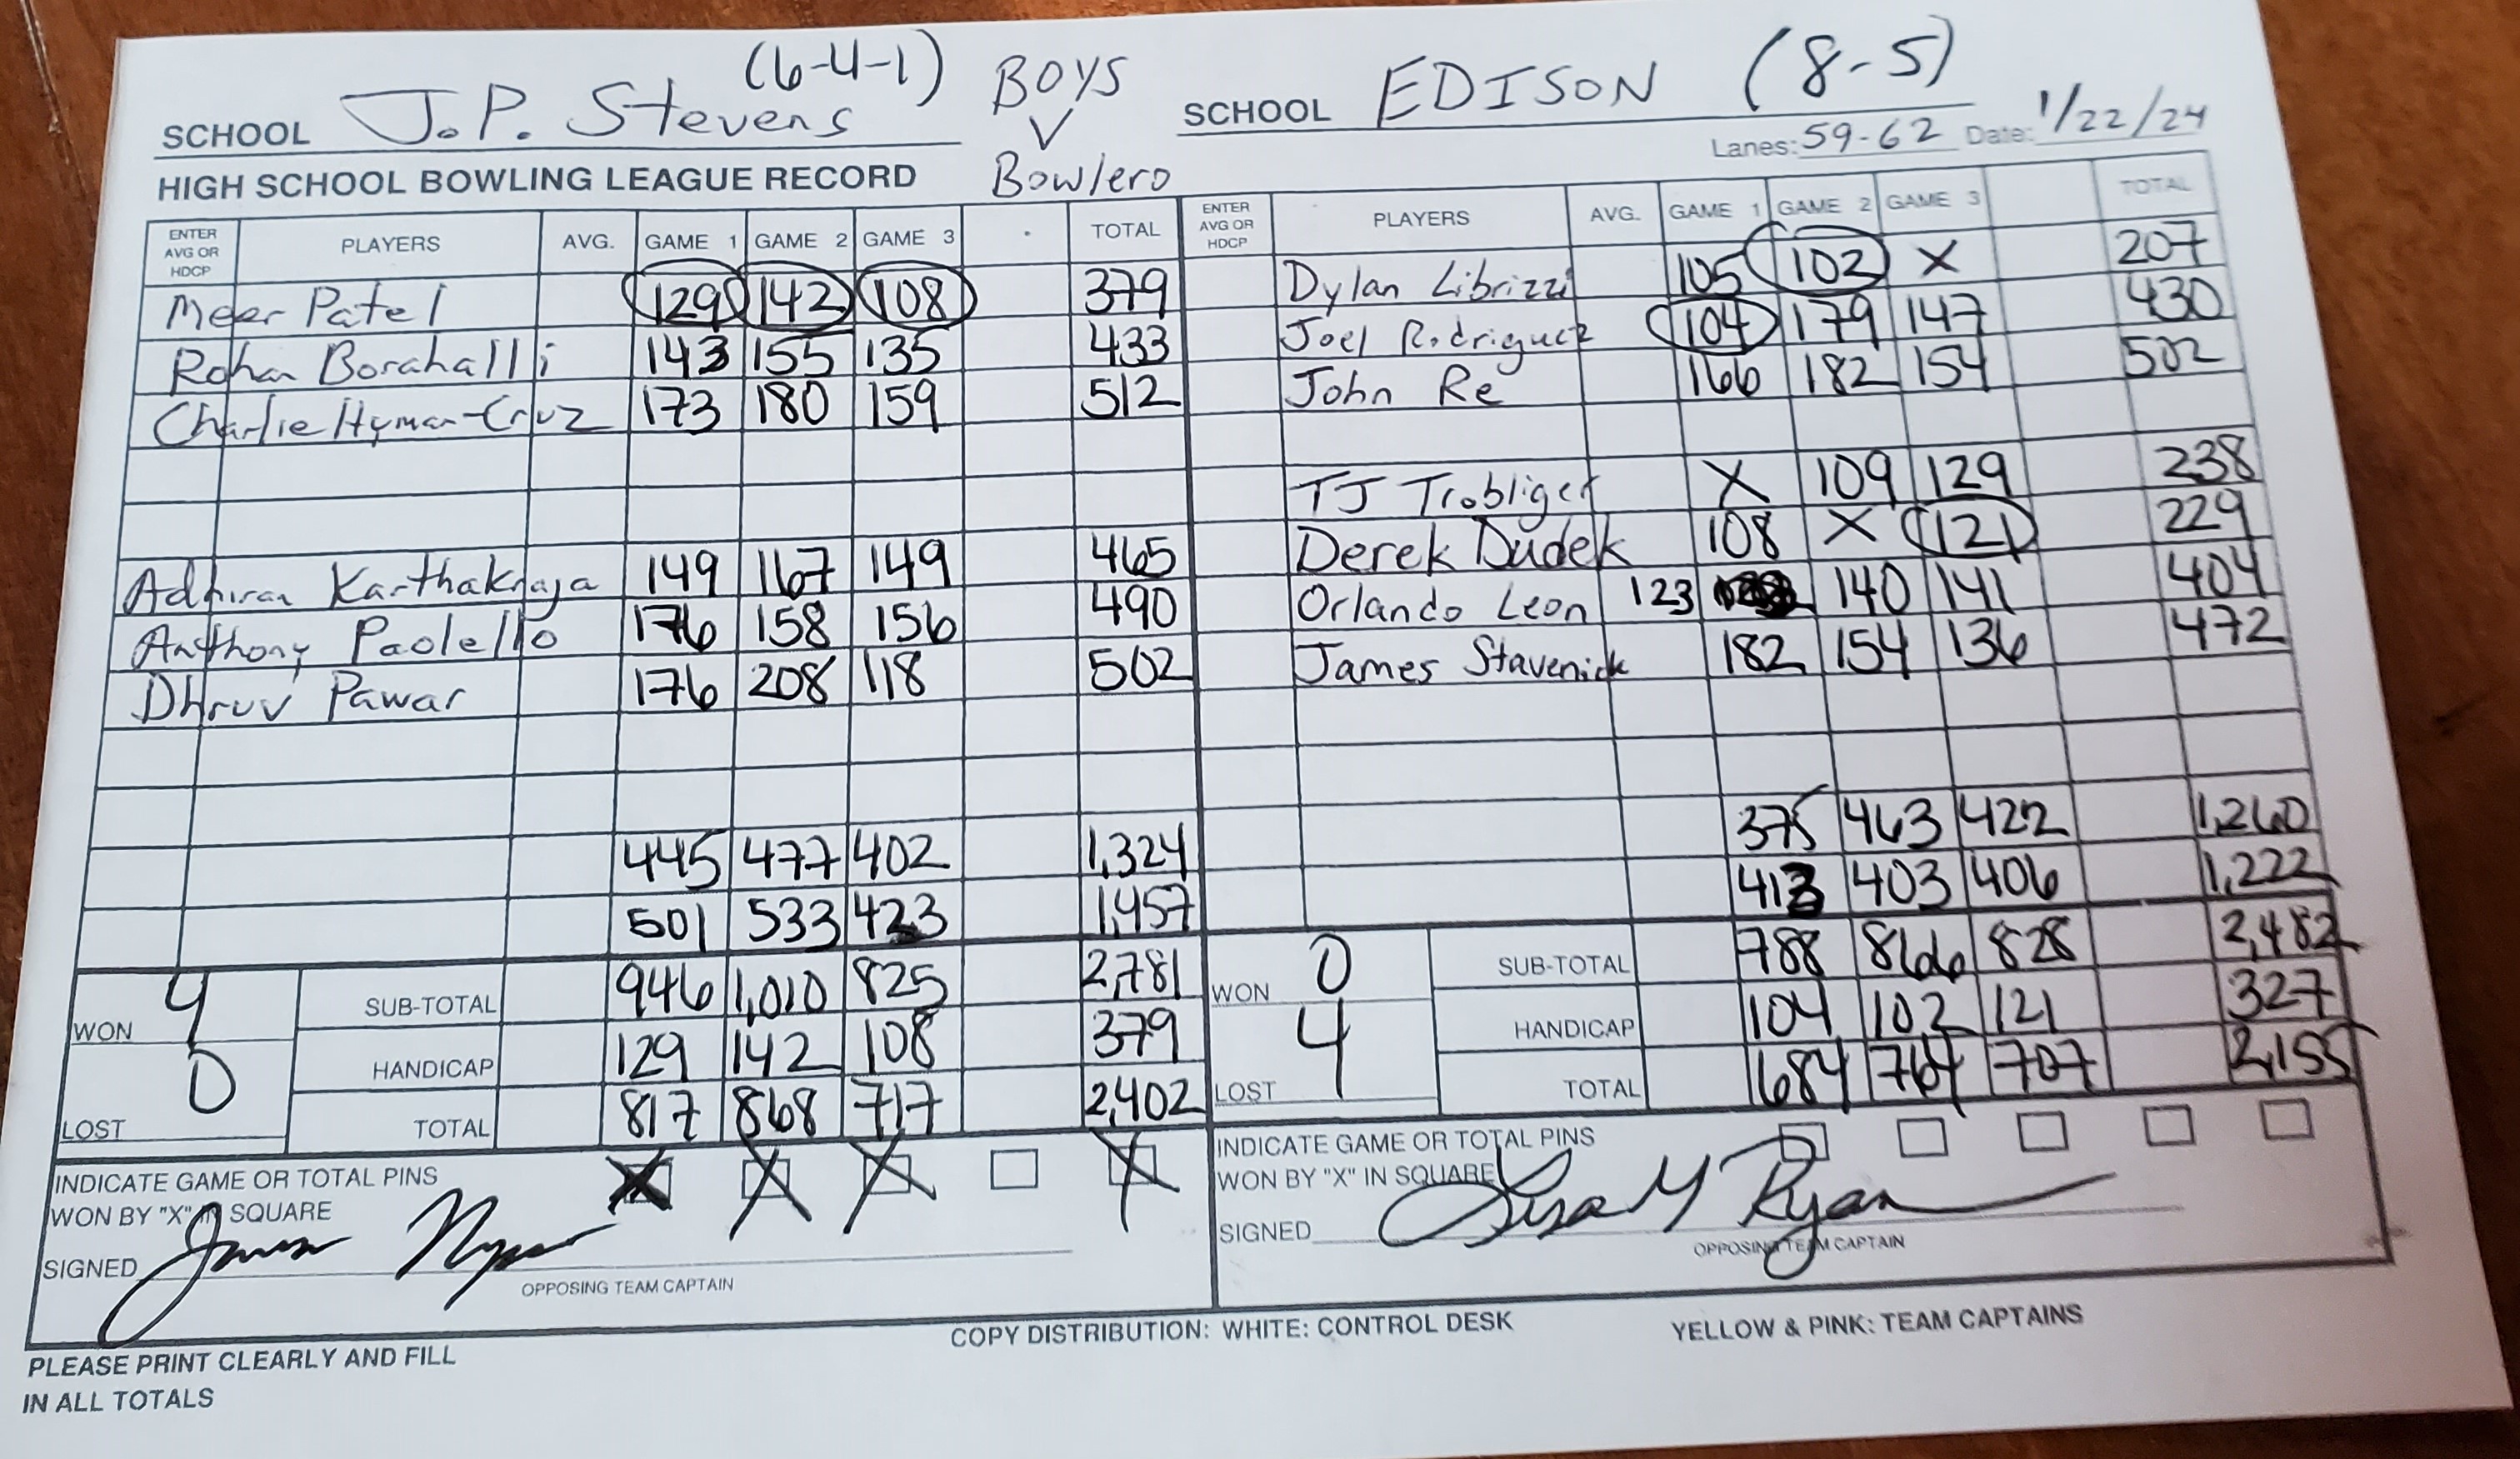 (6-4-1) BOYS (8-5)
SCHOOL J.P. Stevens V SCHOOL EDISON
Lanes: 59-62 Date: 1/22/24
HIGH SCHOOL BOWLING LEAGUE RECORD Bowlero
ENTER AVG OR HDCP PLAYERS AVG. GAME 1 GAME 2 GAME 3 TOTAL ENTER AVG OR HDCP PLAYERS AVG. GAME 1 GAME 2 GAME 3 TOTAL
Meer Patel 129 142 108 379 Dylan Librizzi 105 102 X 207
Rohan Borahalli 143 155 135 433 Joel Rodriguez 104 179 147 430
Charlie Hyman-Cruz 173 180 159 512 John Re 166 182 154 502
TJ X 109 129 238
Adhiran 149 167 149 465 Derek Dudek 108 X 121 229
Anthony Paolello 176 158 156 490 Orlando Leon 123 140 141 404
Dhruv Pawar 176 208 118 502 James Stavenick 182 154 136 472
445 477 402 1,324 375 463 422 1,260
501 533 423 1,457 413 403 406 1,222
WON 4 SUB-TOTAL 946 1,010 825 2,781 WON 0 SUB-TOTAL 788 866 828 2,482
HANDICAP 129 142 108 379 HANDICAP 104 102 121 327
LOST 0 TOTAL 817 868 717 2,402 LOST 4 TOTAL 684 764 707 2,155
INDICATE GAME OR TOTAL PINS X X X X INDICATE GAME OR TOTAL PINS
WON BY "X" IN SQUARE WON BY "X" IN SQUARE
SIGNED SIGNED Lisa M Ryan
OPPOSING TEAM CAPTAIN OPPOSING TEAM CAPTAIN
COPY DISTRIBUTION: WHITE: CONTROL DESK YELLOW & PINK: TEAM CAPTAINS
PLEASE PRINT CLEARLY AND FILL
IN ALL TOTALS